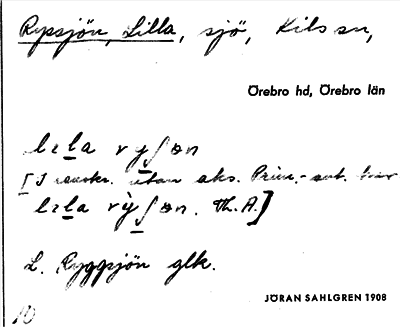 Rypsjön, Lilla, sjö, Kils sn,
Örebro hd, Örebro län
lɩla rẏʃɷn
[I renskr. utan aks. Prim.-ant. har
lɩla rỳʃɷn. Th. A.]
L. Ryggsjön glk.
JÖRAN SAHLGREN 1908